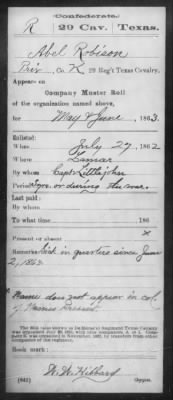 Confederate.
R 29 Cav. Texas.
Abel Robison
Priv, Co. K, 29 Reg't Texas Cavalry.
Appears on
Company Muster Roll
of the organization named above,
for May & June, 1863.
Enlisted:
When July 27, 1862
Where Lamar
By whom Capt Littlejohn
Period 3 yrs. or during the war.
Last paid:
By whom
To what time 186
Present or absent x
Remarks: Sick in quarters since June
2, 1863.
Name does not appear in col.
of Names Present.
Book mark:
(642) Copyist.